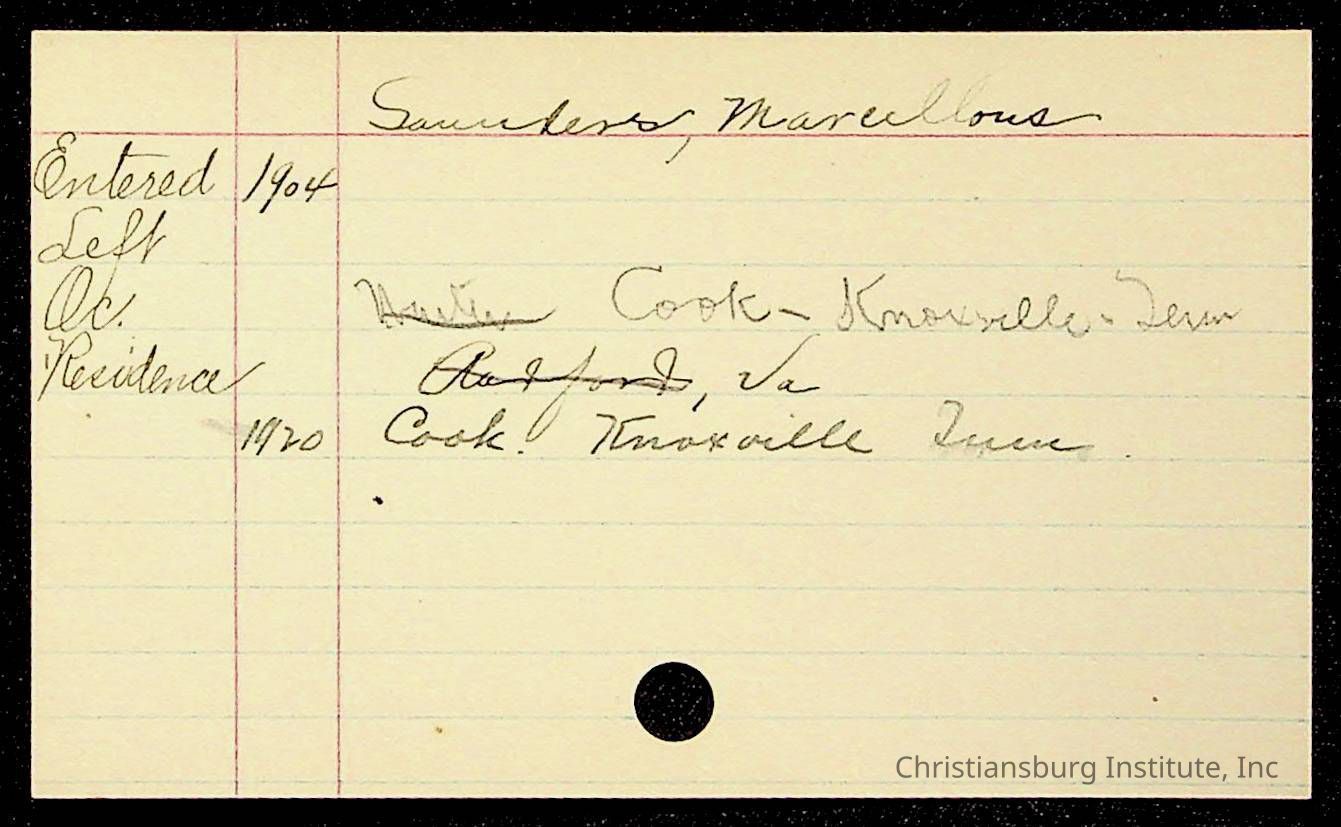 Saunders, Marcellous
Entered 1904
Left
Oc. Waiter Cook - Knoxville - Tenn
Residence Radford, Va
1920 Cook. Knoxville Tenn
Christiansburg Institute, Inc